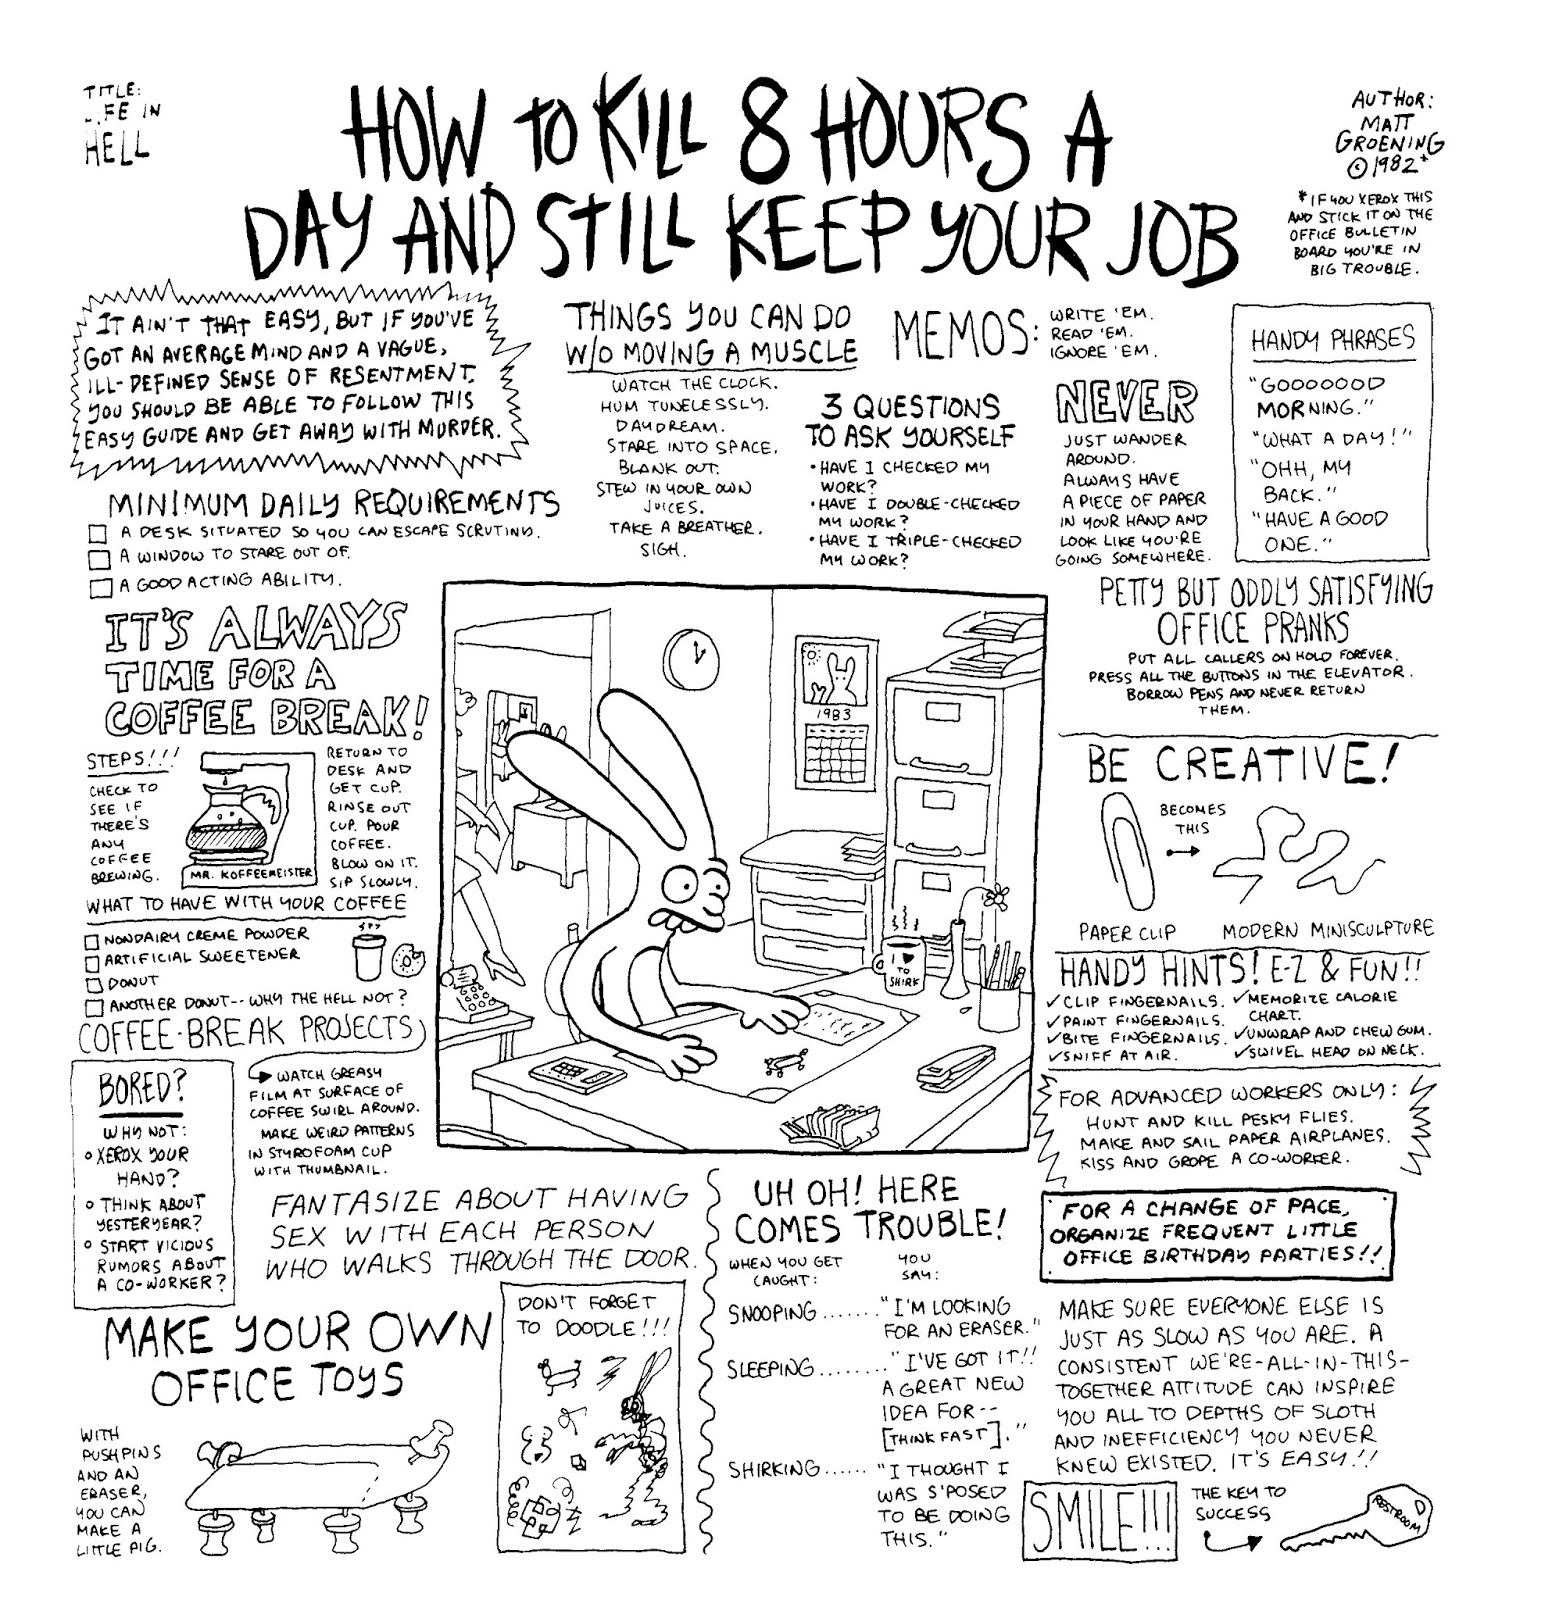 TITLE:
LIFE IN
HELL
HOW TO KILL 8 HOURS A
DAY AND STILL KEEP YOUR JOB
AUTHOR:
MATT
GROENING
© 1982*
* IF YOU XEROX THIS
AND STICK IT ON THE
OFFICE BULLETIN
BOARD YOU'RE IN
BIG TROUBLE.
IT AIN'T THAT EASY, BUT IF YOU'VE
GOT AN AVERAGE MIND AND A VAGUE,
ILL-DEFINED SENSE OF RESENTMENT,
YOU SHOULD BE ABLE TO FOLLOW THIS
EASY GUIDE AND GET AWAY WITH MURDER.
MINIMUM DAILY REQUIREMENTS
A DESK SITUATED SO YOU CAN ESCAPE SCRUTINY.
A WINDOW TO STARE OUT OF.
A GOOD ACTING ABILITY.
IT'S ALWAYS
TIME FOR A
COFFEE BREAK!
STEPS!!!
CHECK TO
SEE IF
THERE'S
ANY
COFFEE
BREWING.
MR. KOFFEEMEISTER
RETURN TO
DESK AND
GET CUP.
RINSE OUT
CUP. POUR
COFFEE.
BLOW ON IT.
SIP SLOWLY.
WHAT TO HAVE WITH YOUR COFFEE
NONDAIRY CREME POWDER
ARTIFICIAL SWEETENER
DONUT
ANOTHER DONUT-- WHY THE HELL NOT?
COFFEE-BREAK PROJECTS
WATCH GREASY
FILM AT SURFACE OF
COFFEE SWIRL AROUND.
MAKE WEIRD PATTERNS
IN STYROFOAM CUP
WITH THUMBNAIL.
BORED?
WHY NOT:
XEROX YOUR
HAND?
THINK ABOUT
YESTERYEAR?
START VICIOUS
RUMORS ABOUT
A CO-WORKER?
THINGS YOU CAN DO
W/O MOVING A MUSCLE
WATCH THE CLOCK.
HUM TUNELESSLY.
DAYDREAM.
STARE INTO SPACE.
BLANK OUT.
STEW IN YOUR OWN
JUICES.
TAKE A BREATHER.
SIGH.
MEMOS:
WRITE 'EM.
READ 'EM.
IGNORE 'EM.
3 QUESTIONS
TO ASK YOURSELF
• HAVE I CHECKED MY
WORK?
• HAVE I DOUBLE-CHECKED
MY WORK?
• HAVE I TRIPLE-CHECKED
MY WORK?
NEVER
JUST WANDER
AROUND.
ALWAYS HAVE
A PIECE OF PAPER
IN YOUR HAND AND
LOOK LIKE YOU'RE
GOING SOMEWHERE.
HANDY PHRASES
"GOOOOOOD
MORNING."
"WHAT A DAY!"
"OHH, MY
BACK."
"HAVE A GOOD
ONE."
1983
I ♥
TO
SHIRK
PETTY BUT ODDLY SATISFYING
OFFICE PRANKS
PUT ALL CALLERS ON HOLD FOREVER.
PRESS ALL THE BUTTONS IN THE ELEVATOR.
BORROW PENS AND NEVER RETURN
THEM.
BE CREATIVE!
BECOMES
THIS
PAPER CLIP
MODERN MINISCULPTURE
HANDY HINTS! E-Z & FUN!!
✓CLIP FINGERNAILS.
✓PAINT FINGERNAILS.
✓BITE FINGERNAILS.
✓SNIFF AT AIR.
✓MEMORIZE CALORIE
CHART.
✓UNWRAP AND CHEW GUM.
✓SWIVEL HEAD ON NECK.
FOR ADVANCED WORKERS ONLY:
HUNT AND KILL PESKY FLIES.
MAKE AND SAIL PAPER AIRPLANES.
KISS AND GROPE A CO-WORKER.
FOR A CHANGE OF PACE,
ORGANIZE FREQUENT LITTLE
OFFICE BIRTHDAY PARTIES!!
FANTASIZE ABOUT HAVING
SEX WITH EACH PERSON
WHO WALKS THROUGH THE DOOR.
MAKE YOUR OWN
OFFICE TOYS
WITH
PUSHPINS
AND AN
ERASER,
YOU CAN
MAKE A
LITTLE PIG.
DON'T FORGET
TO DOODLE!!!
UH OH! HERE
COMES TROUBLE!
WHEN YOU GET
CAUGHT:
YOU
SAY:
SNOOPING......."I'M LOOKING
FOR AN ERASER."
SLEEPING........"I'VE GOT IT!!
A GREAT NEW
IDEA FOR--
[THINK FAST]."
SHIRKING......"I THOUGHT I
WAS S'POSED
TO BE DOING
THIS."
MAKE SURE EVERYONE ELSE IS
JUST AS SLOW AS YOU ARE. A
CONSISTENT WE'RE-ALL-IN-THIS-
TOGETHER ATTITUDE CAN INSPIRE
YOU ALL TO DEPTHS OF SLOTH
AND INEFFICIENCY YOU NEVER
KNEW EXISTED. IT'S EASY!!
SMILE!!!
THE KEY TO
SUCCESS
RESTROOM